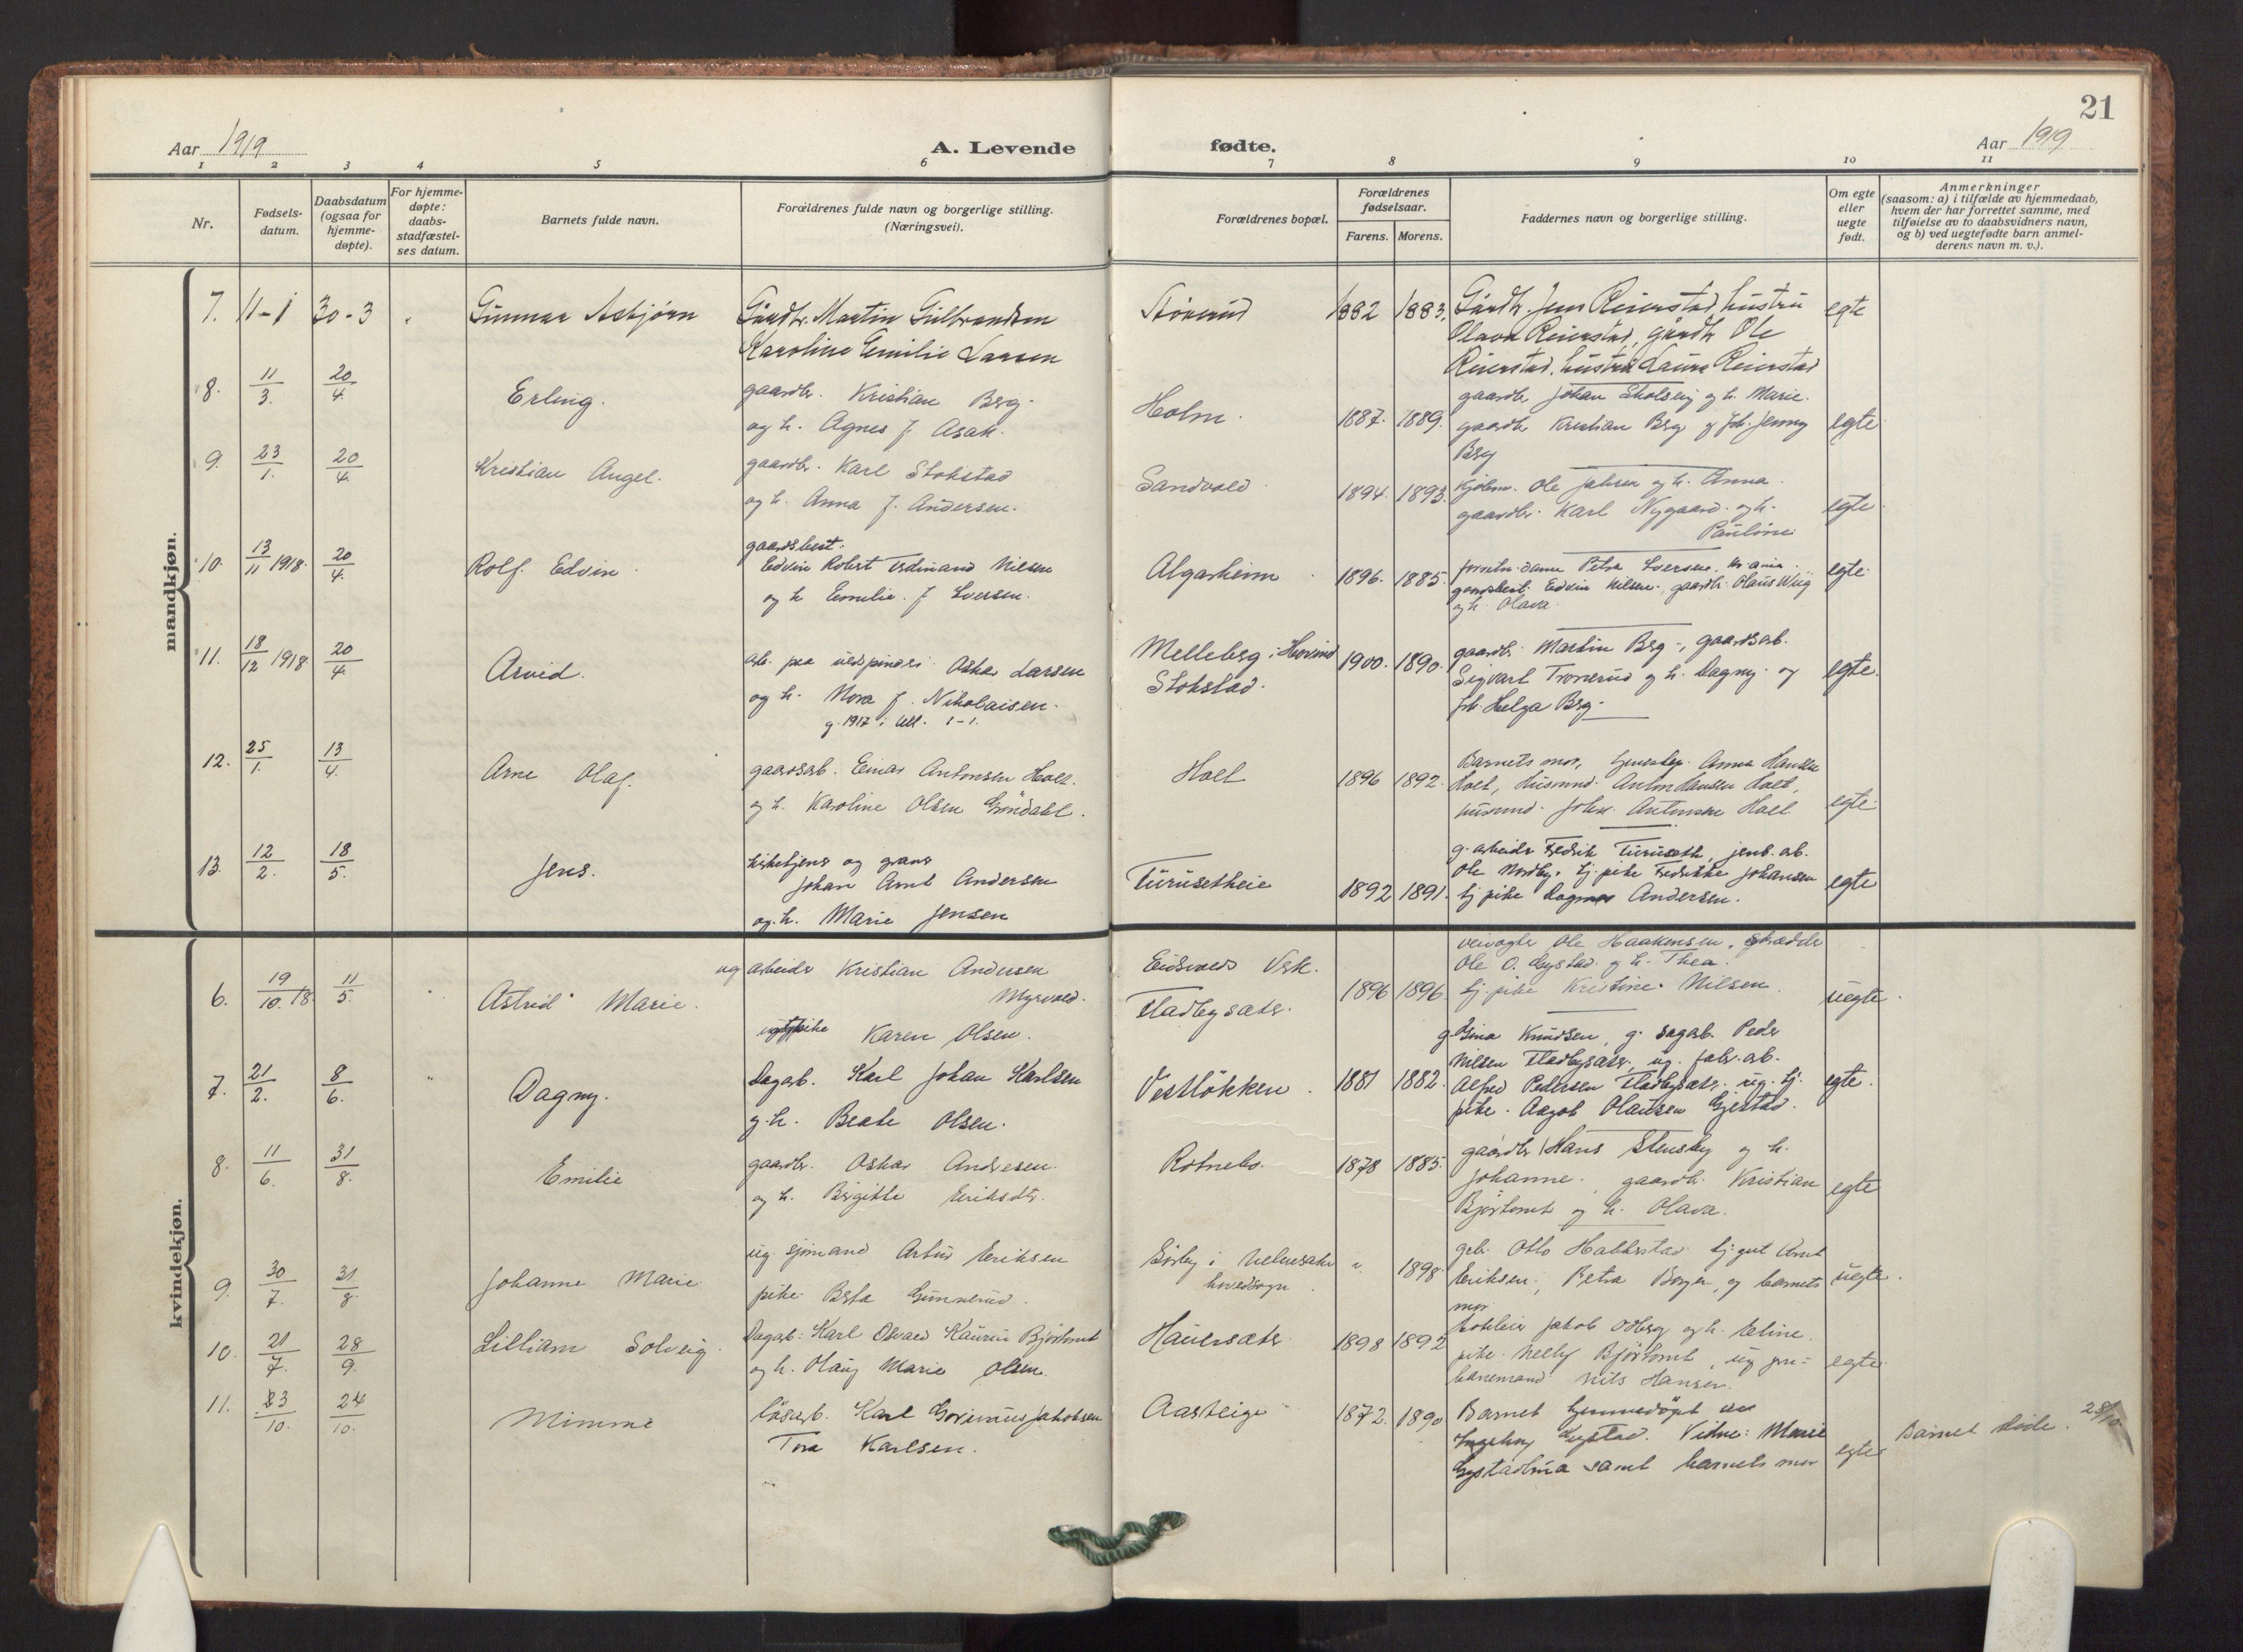 21
Aar 1919
A. Levende
fødte.
Aar 1919
1 2 3 4 5 6 7 8 9 10 11
Nr.
Fødsels-
datum.
Daabsdatum
(ogsaa for
hjemme-
døpte).
For hjemme-
døpte:
daabs-
stadfæstel-
ses datum.
Barnets fulde navn.
Forældrenes fulde navn og borgerlige stilling.
(Næringsvei).
Forældrenes bopæl.
Forældrenes
fødselsaar.
Farens. Morens.
Faddernes navn og borgerlige stilling.
Om egte
eller
uegte
født.
Anmerkninger
(saasom: a) i tilfælde av hjemmedaab,
hvem der har forrettet samme, med
tilføielse av to daabsvidners navn,
og b) ved uegtefødte barn anmel-
derens navn m. v.).
mandkjøn.
7. 11-1 30-3 Gunnar Asbjørn
Gaardbr. Martin Gulbrandsen
Karoline Emilie Larsen
Størerud 1882 1883
Gårdbr. Jens Reierstad, hustru
Olava Reierstad, gårdbr Ole
Reierstad, hustru Laura Reierstad
egte
8. 11/3. 20/4. Erling.
gaardbr. Kristian Berg.
og h. Agnes f. Asak.
Holm. 1887. 1889.
gaardbr Johan og h. Marie.
gaardbr Kristian Berg og frk. Jenny
Berg
egte
9. 23/1. 20/4. Kristian Angel.
gaardbr. Karl Stokstad
og h. Anna f. Andersen.
Sandvold. 1894. 1893.
Ole Jahren og h. Anna.
gaardbr. Karl Nygaard og h.
Pauline
egte.
10. 13/11 1918. 20/4. Rolf Edvin.
gaardsbest:
Edvin Robert Ferdinand Nilsen
og h Emilie. f Iversen.
Algarheim. 1896. 1885.
Petra Iversen, Kr.ania.
gaardsbest. Edvin Nilsen. gaardbr. Olaus Wiig
og h. Olava.
egte.
11. 18/12 1918. 20/4. Arvid.
arb. paa uldspineri Oskar Larsen
og h. Nora f. Nikolaisen.
g. 1917 i Ull. 1-1.
Melleberg i Hovind
Stokstad.
1900. 1890.
gaardbr. Martin Berg, gaardsarb.
Sigvart Tronerud og h. Dagny og
frk. Helga Berg.
egte.
12. 25/1. 13/4. Arne Olaf.
gaardsarb. Einar Antonsen Holt.
og h. Karoline Olsen Gröndahl.
Holt 1896 1892.
Barnets mor, Anna Hansen
Holt, husmand. Anton Hansen Holt,
husmand. Johan Antonsen Holt
egte.
13. 12/2. 18/5. Jens.
kirketjener og graver
Johan Arnt Andersen
og. h. Marie Jensen
Turusetheie 1892 1891.
g. arbeider Fredrik Turuseth, jenb. arb.
Ole Nordby. tj. pike Fredrikke Johansen
tj pike Dagmar Andersen.
egte
kvindekjøn.
6. 19/10. 18. 11/5. Astrid Marie.
ug arbeider Kristian Andersen
Myrvold.
ug tj pike Karen Olsen.
Eidsvold Verk.
Fladbysæter.
1896 1896.
veivogter Ole Haakensen, skrædder
Ole O. Gystad og h. Thea.
tj. pike Kristine Nilsen
uegte.
7. 21/2. 8/6. Dagny.
Dagarb. Karl Johan Karlsen
g. h. Beate Olsen.
Vestlökken. 1881 1882.
g. Gina Knudsen, g. sagarb. Peder
Nilsen Fladbysæter, ug. fabr. arb.
Alfred Pedersen Fladbysæter. ug. tj.
pike. Aagot Olausen Gjestad.
egte.
8. 11/6. 31/8. Emilie
gaardbr. Oskar Andresen.
og h. Birgitte Eriksdtr.
Rotnebo. 1878 1885.
gaardbr Hans Stensby og h.
Johanne. gaardbr. Kristian
Björtomt og h. Olava.
egte
9. 30/7. 31/8. Johanne Marie
ug. sjömand Artur Eriksen
pike Berta Gunnerud.
Görby i Nebesæter
hovedsogn.
1898
gbr. Otto Habberstad. tj. gut Arnt
Eriksen, Petra Borger, og barnets
mor
uegte.
10. 21/7. 28/9. Lilliam Solveig.
Dagarb: Karl Osvald Laurin Björtomt
og h. Olaug Marie Olsen.
Hauersæter. 1898 1892
Jakob Odberg og h. Eline.
pike. Nelly Björtomt, ug jern-
banemand Nils Hansen.
egte.
11. 23/10. 24/10. Mimmi
løsarb. Karl Jakobsen
Tora Karlsen.
Aasteige 1872. 1890
Barnet hjemmedöpt av
Ingeborg Gystad. Vidner: Marie
Gystadbrua samt barnets mor
egte
Barnet döde. 25/10.